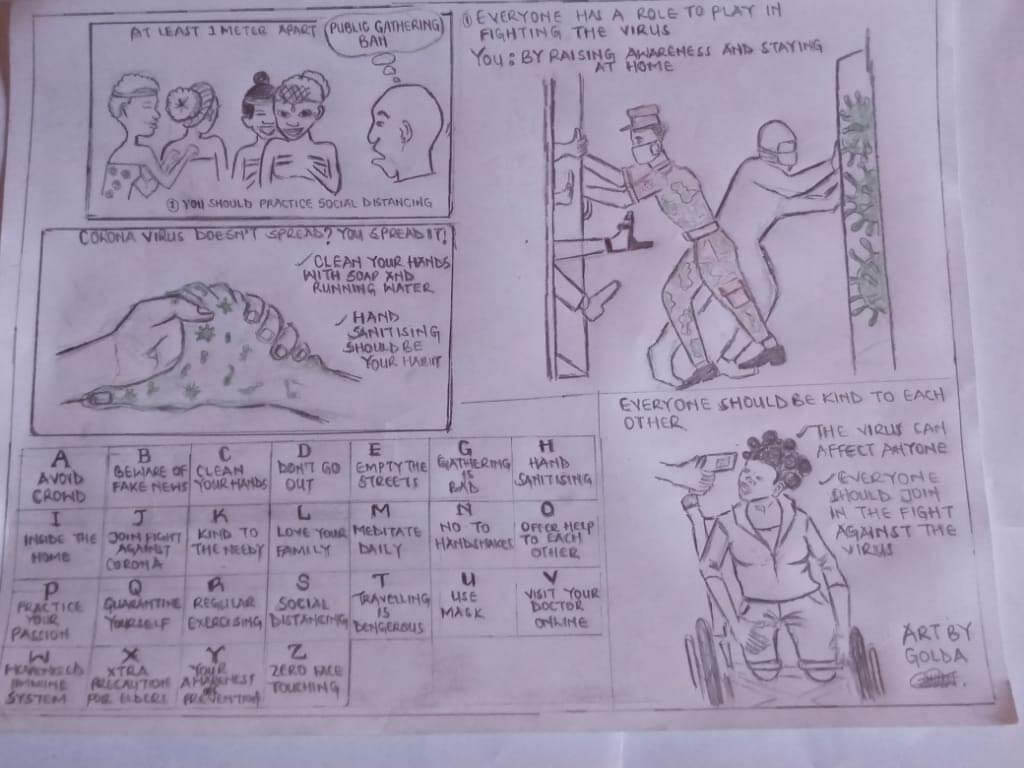 AT LEAST 1 METER APART
PUBLIC GATHERING
BAN
② YOU SHOULD PRACTICE SOCIAL DISTANCING
① EVERYONE HAS A ROLE TO PLAY IN
FIGHTING THE VIRUS
YOU: BY RAISING AWARENESS AND STAYING
AT HOME
CORONA VIRUS DOESN'T SPREAD? YOU SPREAD IT!
✓ CLEAN YOUR HANDS
WITH SOAP AND
RUNNING WATER
✓ HAND
SANITISING
SHOULD BE
YOUR HABIT
EVERYONE SHOULD BE KIND TO EACH
OTHER
✓ THE VIRUS CAN
AFFECT ANYONE
✓ EVERYONE
SHOULD JOIN
IN THE FIGHT
AGAINST THE
VIRUS
ART BY
GOLDA
A
AVOID
CROWD
B
BEWARE OF
FAKE NEWS
C
CLEAN
YOUR HANDS
D
DON'T GO
OUT
E
EMPTY THE
STREETS
G
GATHERING
IS
BAD
H
HAND
SANITISING
I
INSIDE THE
HOME
J
JOIN FIGHT
AGAINST
CORONA
K
KIND TO
THE NEEDY
L
LOVE YOUR
FAMILY
M
MEDITATE
DAILY
N
NO TO
HANDSHAKES
O
OFFER HELP
TO EACH
OTHER
P
PRACTICE
YOUR
PASSION
Q
QUARANTINE
YOURSELF
R
REGULAR
EXERCISING
S
SOCIAL
DISTANCING
T
TRAVELLING
IS
DENGEROUS
U
USE
MASK
V
VISIT YOUR
DOCTOR
ONLINE
W
IMMUNE
SYSTEM
X
XTRA
PRECAUTION
FOR ELDERS
Y
YOUR
AWARENESS
PREVENTION
Z
ZERO FACE
TOUCHING